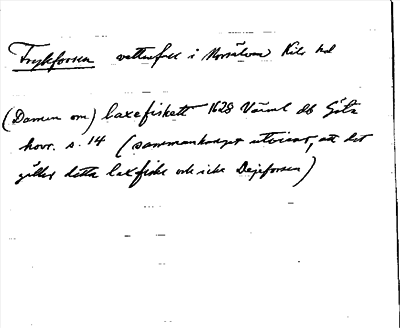 Frykforsen vattenfall i Norsälven Kils hd
(Damen om) laxefiskett 1628 Värml db Göta
hovr. s. 14 (sammanhanget utvisar, att det
gäller detta laxfiske och icke Dejeforsen)